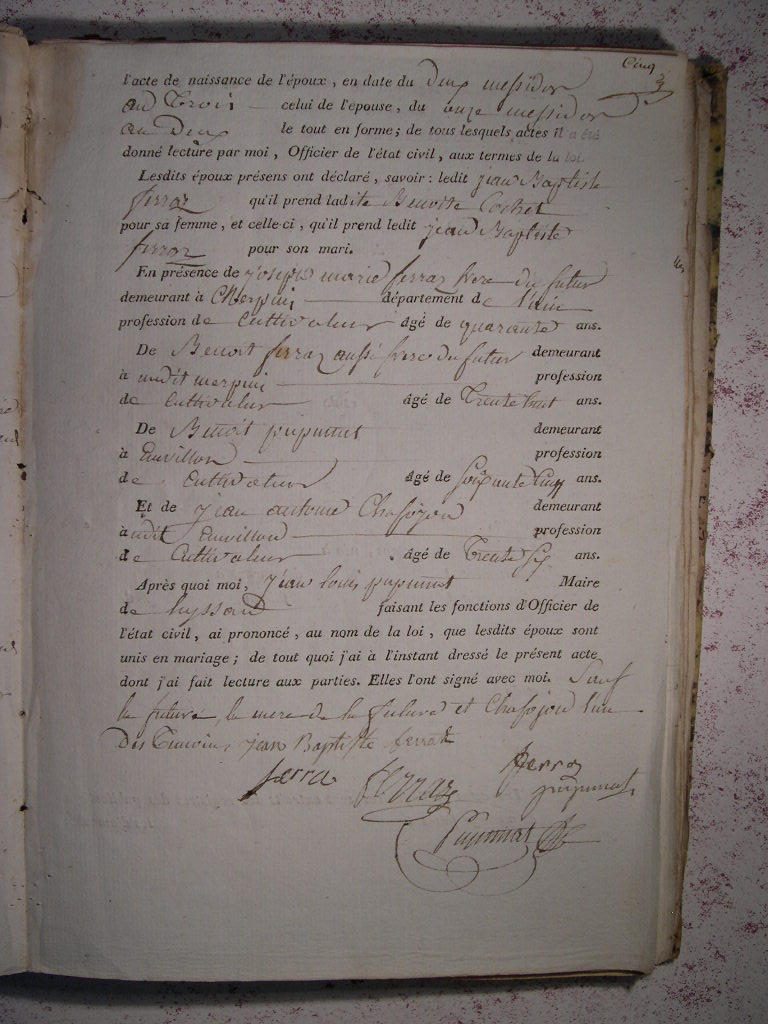 Cinq
l'acte de naissance de l'époux, en date du deux messidor
an Trois celui de l'épouse, du onze messidor
an Deux le tout en forme; de tous lesquels actes il a été
donné lecture par moi, Officier de l'état civil, aux termes de la loi.
Lesdits époux présens ont déclaré, savoir: ledit jean Baptiste
ferraz qu'il prend ladite Benoite Cochet
pour sa femme, et celle-ci, qu'il prend ledit jean Baptiste
ferraz pour son mari.
En présence de joseph marie ferraz frere du futur
demeurant à département de l'ain
profession de Cultivateur âgé de quarante ans.
De Benoit ferraz aussi frere du futur demeurant
à profession
de Cultivateur âgé de Trente huit ans.
De Benoit pupunat demeurant
à profession
de Cultivateur âgé de Soixante Cinq ans.
Et de jean antoine Chafojou demeurant
à profession
de Cultivateur âgé de Trente Six ans.
Après quoi moi, jean louis pupunat Maire
de lyssard faisant les fonctions d'Officier de
l'état civil, ai prononcé, au nom de la loi, que lesdits époux sont
unis en mariage; de tout quoi j'ai à l'instant dressé le présent acte
dont j'ai fait lecture aux parties. Elles l'ont signé avec moi. Sauf
la future, la mere de la future et Chafojou l'un
Des Temoins jean Baptiste ferrat
ferra ferraz ferraz
pupunat
Pupunat